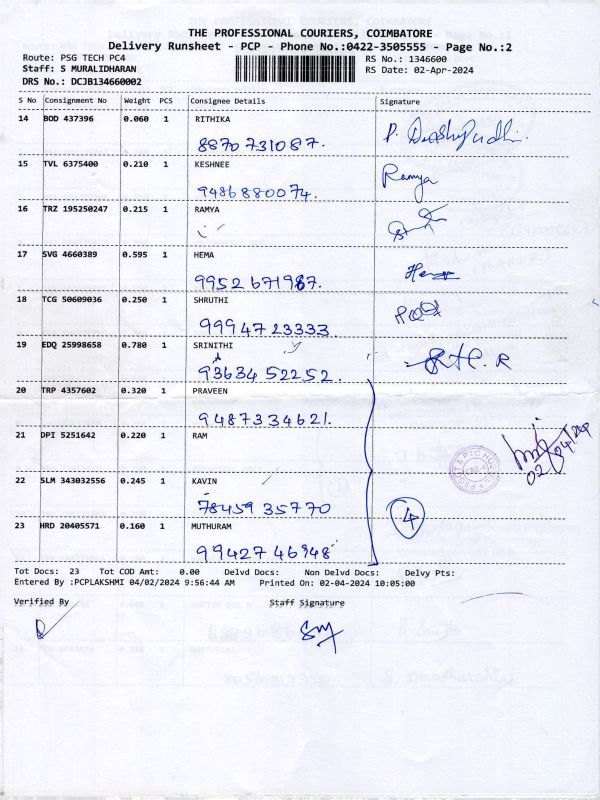 THE PROFESSIONAL COURIERS, COIMBATORE
Delivery Runsheet - PCP - Phone No.:0422-3505555 - Page No.:2
Route: PSG TECH PC4
RS No.: 1346600
Staff: S MURALIDHARAN
RS Date: 02-Apr-2024
DRS No.: DCJB134660002
S No Consignment No Weight PCS Consignee Details Signature
14 BOD 437396 0.060 1 RITHIKA
8870731087.
15 TVL 6375400 0.210 1 KESHNEE
9486880074. Ramya
16 TRZ 195250247 0.215 1 RAMYA
17 SVG 4660389 0.595 1 HEMA
9952671987.
18 TCG 50609036 0.250 1 SHRUTHI
9994723333
19 EDQ 25998658 0.780 1 SRINITHI
93634 52252.
20 TRP 4357602 0.320 1 PRAVEEN
9487334621.
21 DPI 5251642 0.220 1 RAM
02/04/24
22 SLM 343032556 0.245 1 KAVIN
78459 35770
4
23 HRD 20405571 0.160 1 MUTHURAM
99427 46948
Tot Docs: 23 Tot COD Amt: 0.00 Delvd Docs: Non Delvd Docs: Delvy Pts:
Entered By :PCPLAKSHMI 04/02/2024 9:56:44 AM Printed On: 02-04-2024 10:05:00
Verified By Staff Signature